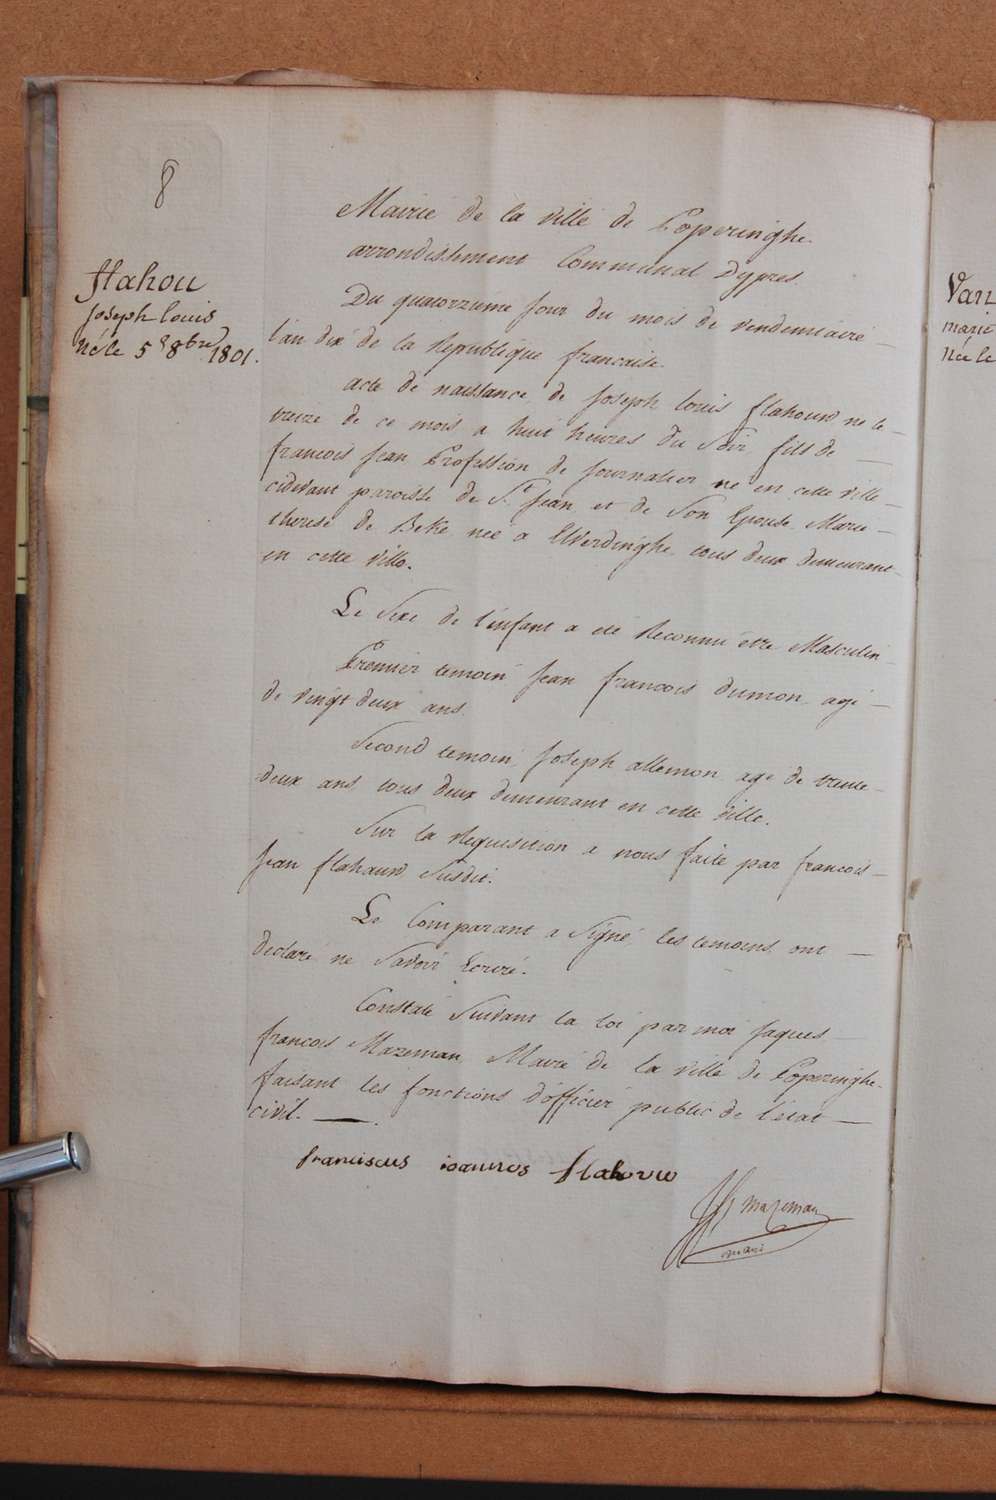 8
flahou
Joseph louis
né le 5 8bre 1801.
Mairie de la ville de Poperinghe.
arrondissement Communal Dypres.
Du quatorzieme Jour du mois de vendemiaire
l'an dix de la Republique francaise.
acte de naissance de Joseph louis flahouw ne le
treize de ce mois a huit heures du Soir fils de
francois Jean Profession de Journalier ne en cette ville
cidevant paroisse de St Jean et de Son Epouse Marie
therese de Beke neé a Elverdinghe tous deux demeurant
en cette ville.
Le Sexe de l'enfant a eté Reconnu étre Masculin
Premier temoin Jean francois dumon agé
de vingt deux ans.
Second temoin, Joseph allemon agé de trente
deux ans, tous deux demeurant en cette ville.
Sur la Requisition a nous faite par francois
Jean flahauw Susdit.
Le Comparant a Signé, les temoins ont
declaré ne Savoir Ecriré.
Constaté Suivant la loi par moi Jaques
francois Mazeman Mairé de la ville de Poperinghe
faisant les fonctions d'officier public de l'etat
civil.
franciscus ioannes flahouw
mazeman
Van
marie
née le